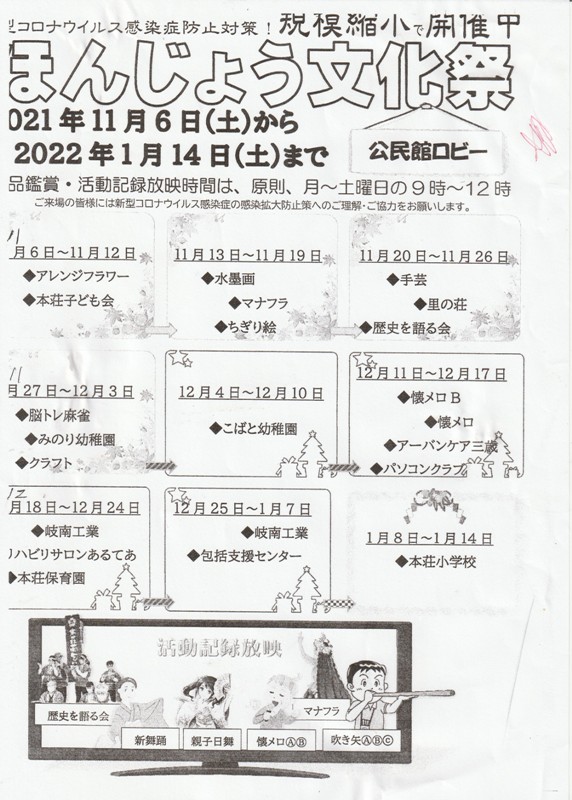 型コロナウイルス感染症防止対策！規模縮小で開催中
ほんじょう文化祭
2021年11月6日(土)から
2022年1月14日(土)まで
公民館ロビー
品鑑賞・活動記録放映時間は、原則、月～土曜日の9時～12時
ご来場の皆様には新型コロナウイルス感染症の感染拡大防止策へのご理解・ご協力をお願いします。
11
月6日～11月12日
◆アレンジフラワー
◆本荘子ども会
11月13日～11月19日
◆水墨画
◆マナフラ
◆ちぎり絵
11月20日～11月26日
◆手芸
◆里の荘
◆歴史を語る会
11
月27日～12月3日
◆脳トレ麻雀
◆みのり幼稚園
◆クラフト
12月4日～12月10日
◆こばと幼稚園
12月11日～12月17日
◆懐メロB
◆懐メロ
◆アーバンケア三歳
◆パソコンクラブ
12
月18日～12月24日
◆岐南工業
リハビリサロンあるてあ
◆本荘保育園
12月25日～1月7日
◆岐南工業
◆包括支援センター
1月8日～1月14日
◆本荘小学校
活動記録放映
歴史を語る会
新舞踊
親子日舞
懐メロⒶⒷ
マナフラ
吹き矢ⒶⒷⒸ